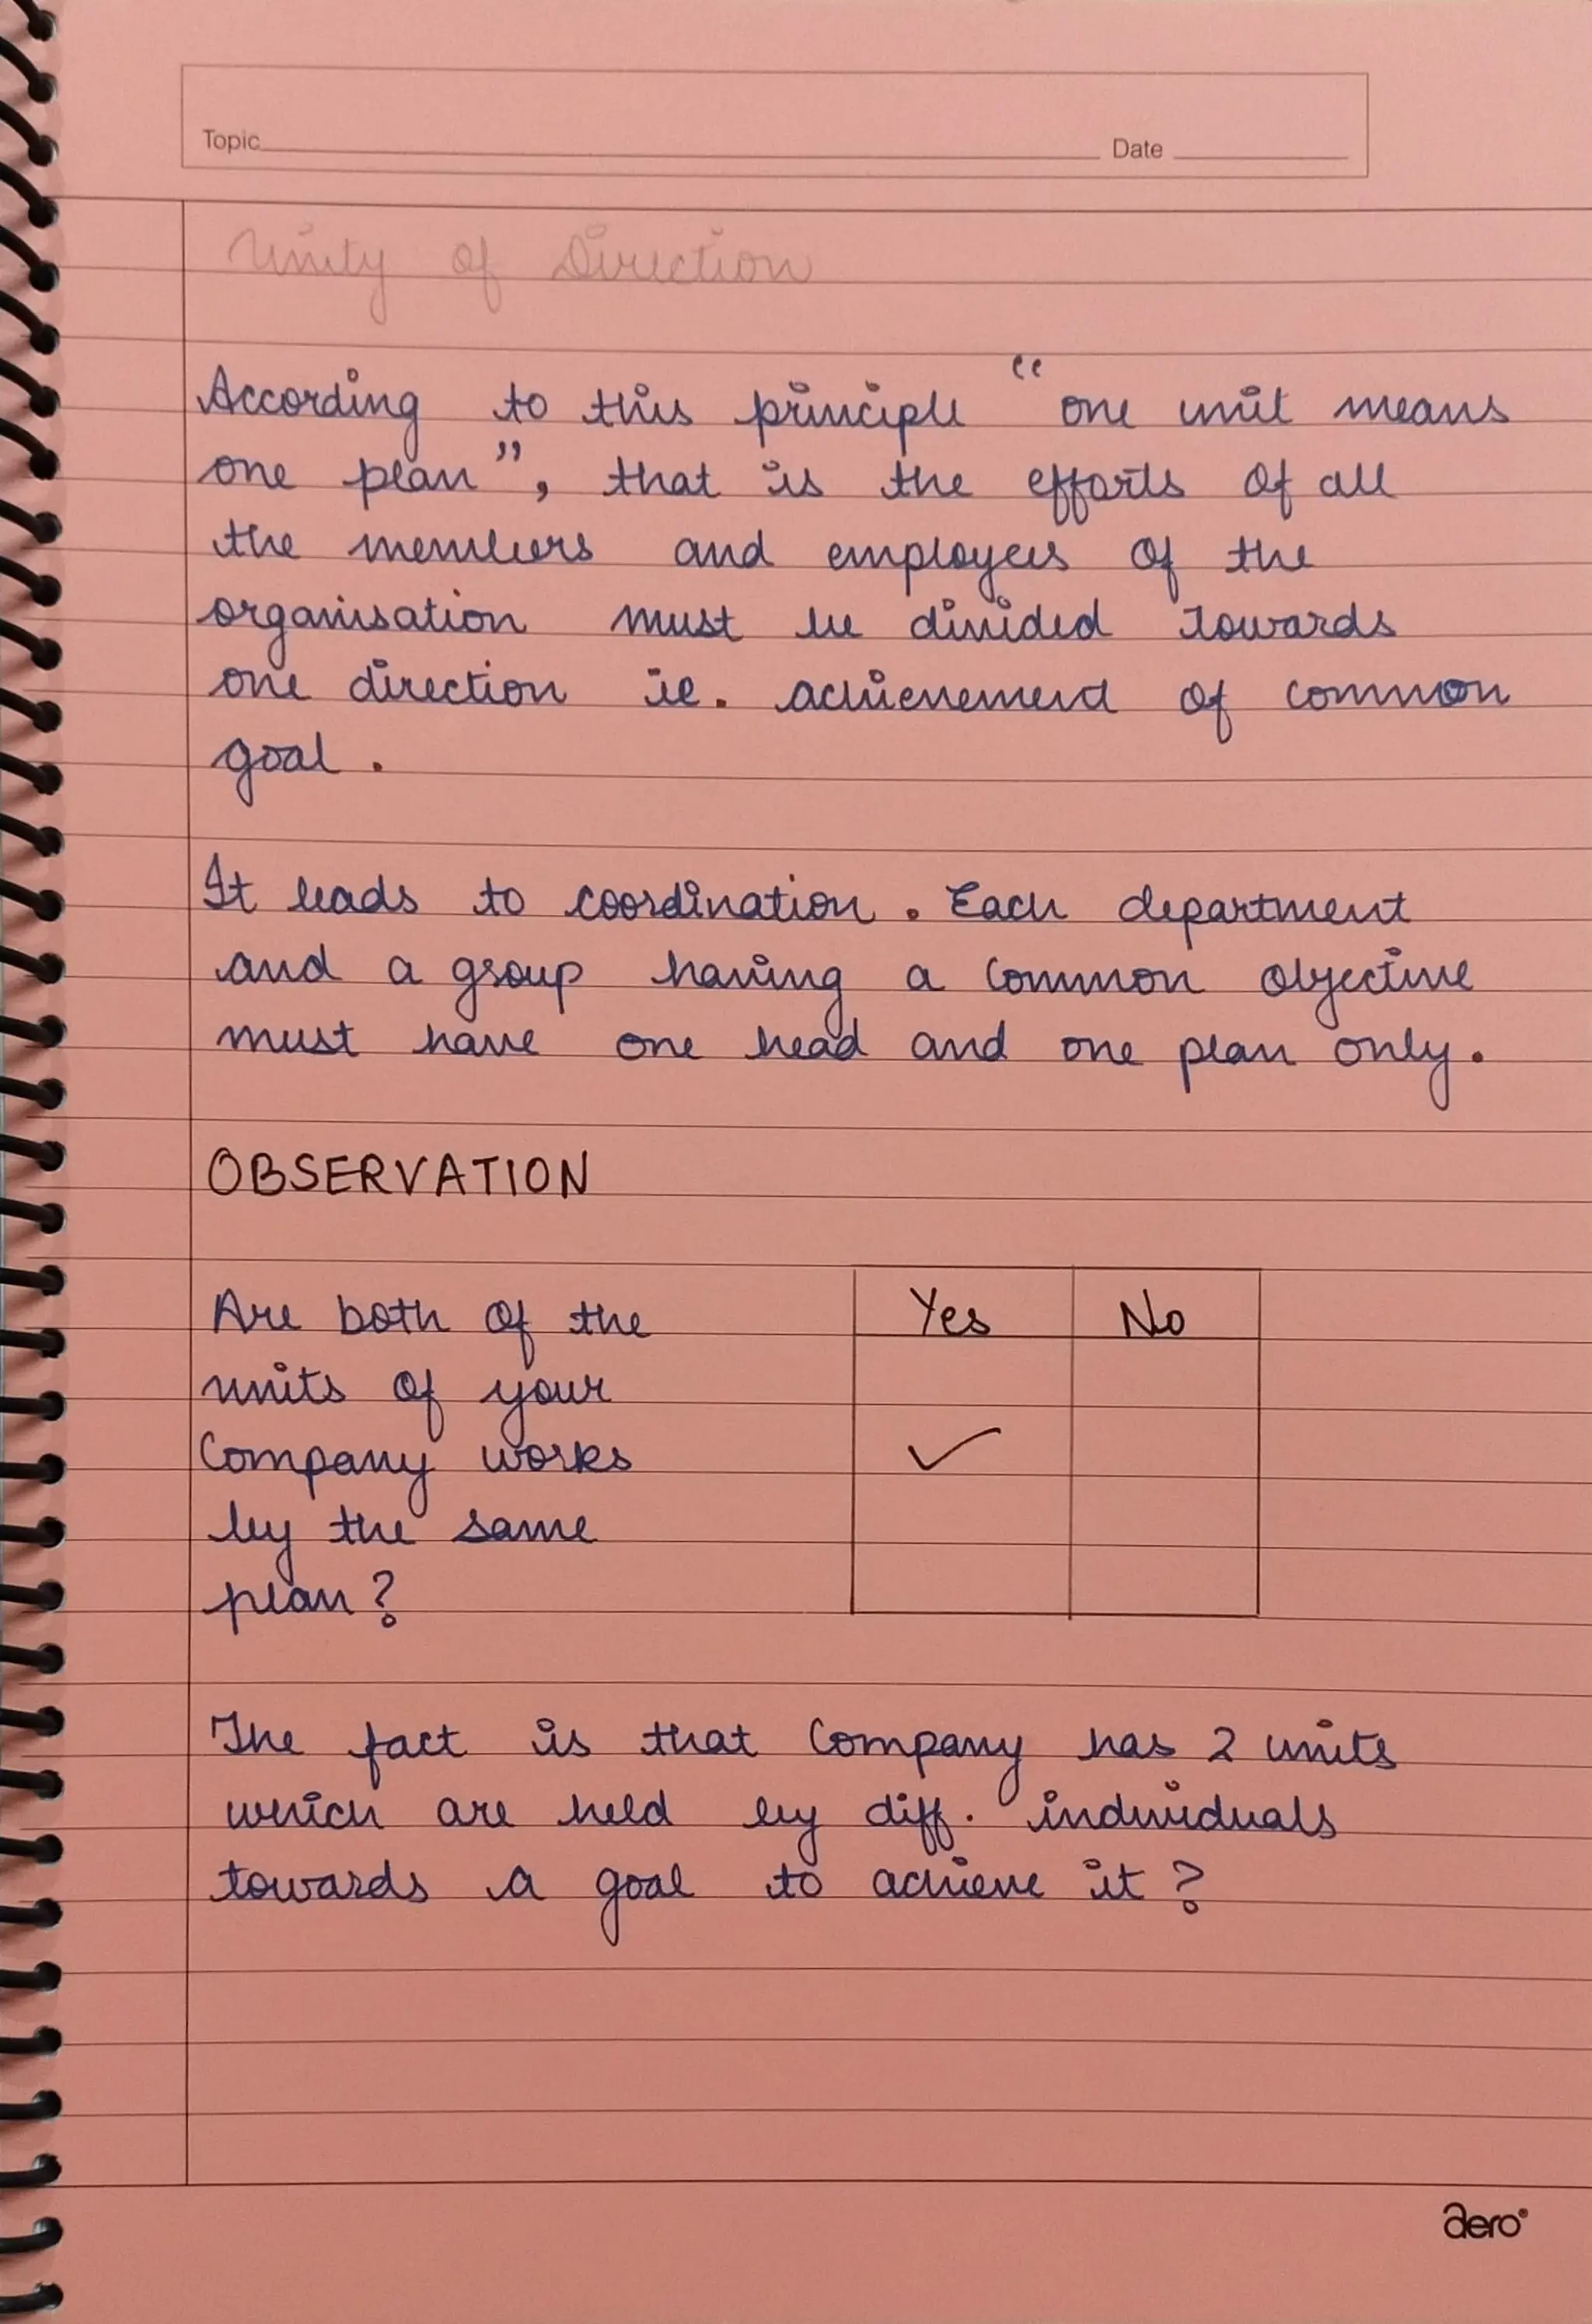 Topic Date
Unity of Direction
According to this principle "one unit means
one plan", that is the efforts of all
the members and employees of the
organisation must be divided towards
one direction ie. achievement of common
goal.
It leads to coordination. Each department
and a group having a common objective
must have one head and one plan only.
OBSERVATION
Yes No
Are both of the
units of your
Company works
by the same
plan?
The fact is that Company has 2 units
which are held by diff. individuals
towards a goal to achieve it?
aero